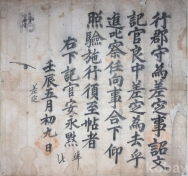 行郡守爲差定事詔文
記官良中差定爲去乎
進叱察任向事合下仰
照驗施行須至帖者
右下記官安永㸃 准此
壬辰五月初九日
差定
kobay